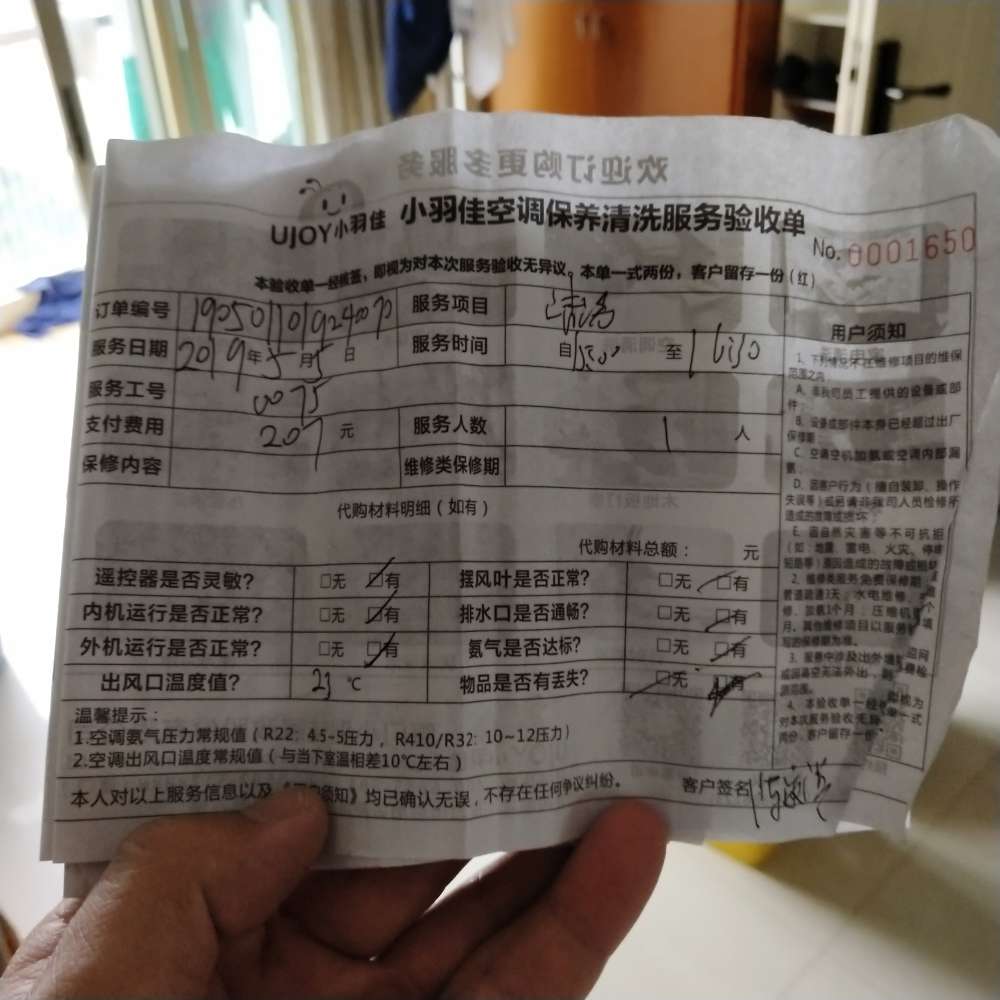 欢迎订购更多服务
UJOY小羽佳 小羽佳空调保养清洗服务验收单
No. 0001650
本验收单一经核签，即视为对本次服务验收无异议。本单一式两份，客户留存一份（红）
订单编号 服务项目
服务日期 2019年5月5日 服务时间 自1500至1630
服务工号 0075
支付费用 207元 服务人数 1人
保修内容 维修类保修期
代购材料明细（如有）
代购材料总额： 元
遥控器是否灵敏？ □无 □有 摆风叶是否正常？ □无 □有
内机运行是否正常？ □无 □有 排水口是否通畅？ □无 □有
外机运行是否正常？ □无 □有 氨气是否达标？ □无 □有
出风口温度值？ 23 ℃ 物品是否有丢失？ □无 □有
温馨提示：
1.空调氨气压力常规值（R22: 4.5~5压力，R410/R32: 10~12压力）
2.空调出风口温度常规值（与当下室温相差10℃左右）
本人对以上服务信息以及《 须知》均已确认无误，不存在任何争议纠纷。
客户签名
用户须知
1、下列情况不在维修项目的维保
范围之内
A、非我司员工提供的设备或部
件；
B、设备或部件本身已经超过出厂
保修期
C、空调空机加氨或空调内部漏
氨；
D、因客户行为（擅自装卸、操作
失误等）或另请非我司人员检修所
造成的故障或损坏；
E、因自然灾害等不可抗拒
（如：地震、雷电、火灾、停电
短路等）原因造成的故障或损坏
2、维修类服务免费保修期
管道疏通3天，水电维修
修、加氨1个月，压缩机
月，其他维修项目以服务
写的保修期为准。
3、服务中涉及出外墙
4、本验收单一经 即视为
对本次服务验收无异 单一式
两份，客户留存一份